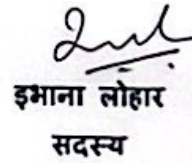 इभाना लोहार
सदस्य